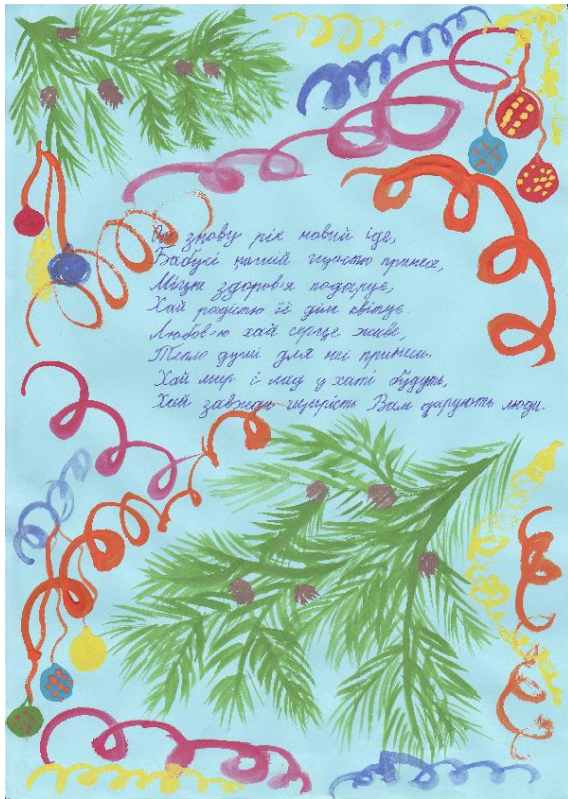 знову рік новий іде,
Бабусі нашій щастя принесе,
Міцне здоров'я подарує,
Хай радістю її дім квітує.
Любов'ю хай серце живе,
Тепло душі для неї принесе.
Хай мир і лад у хаті будуть,
Хай завжди щирість Вам дарують люди.